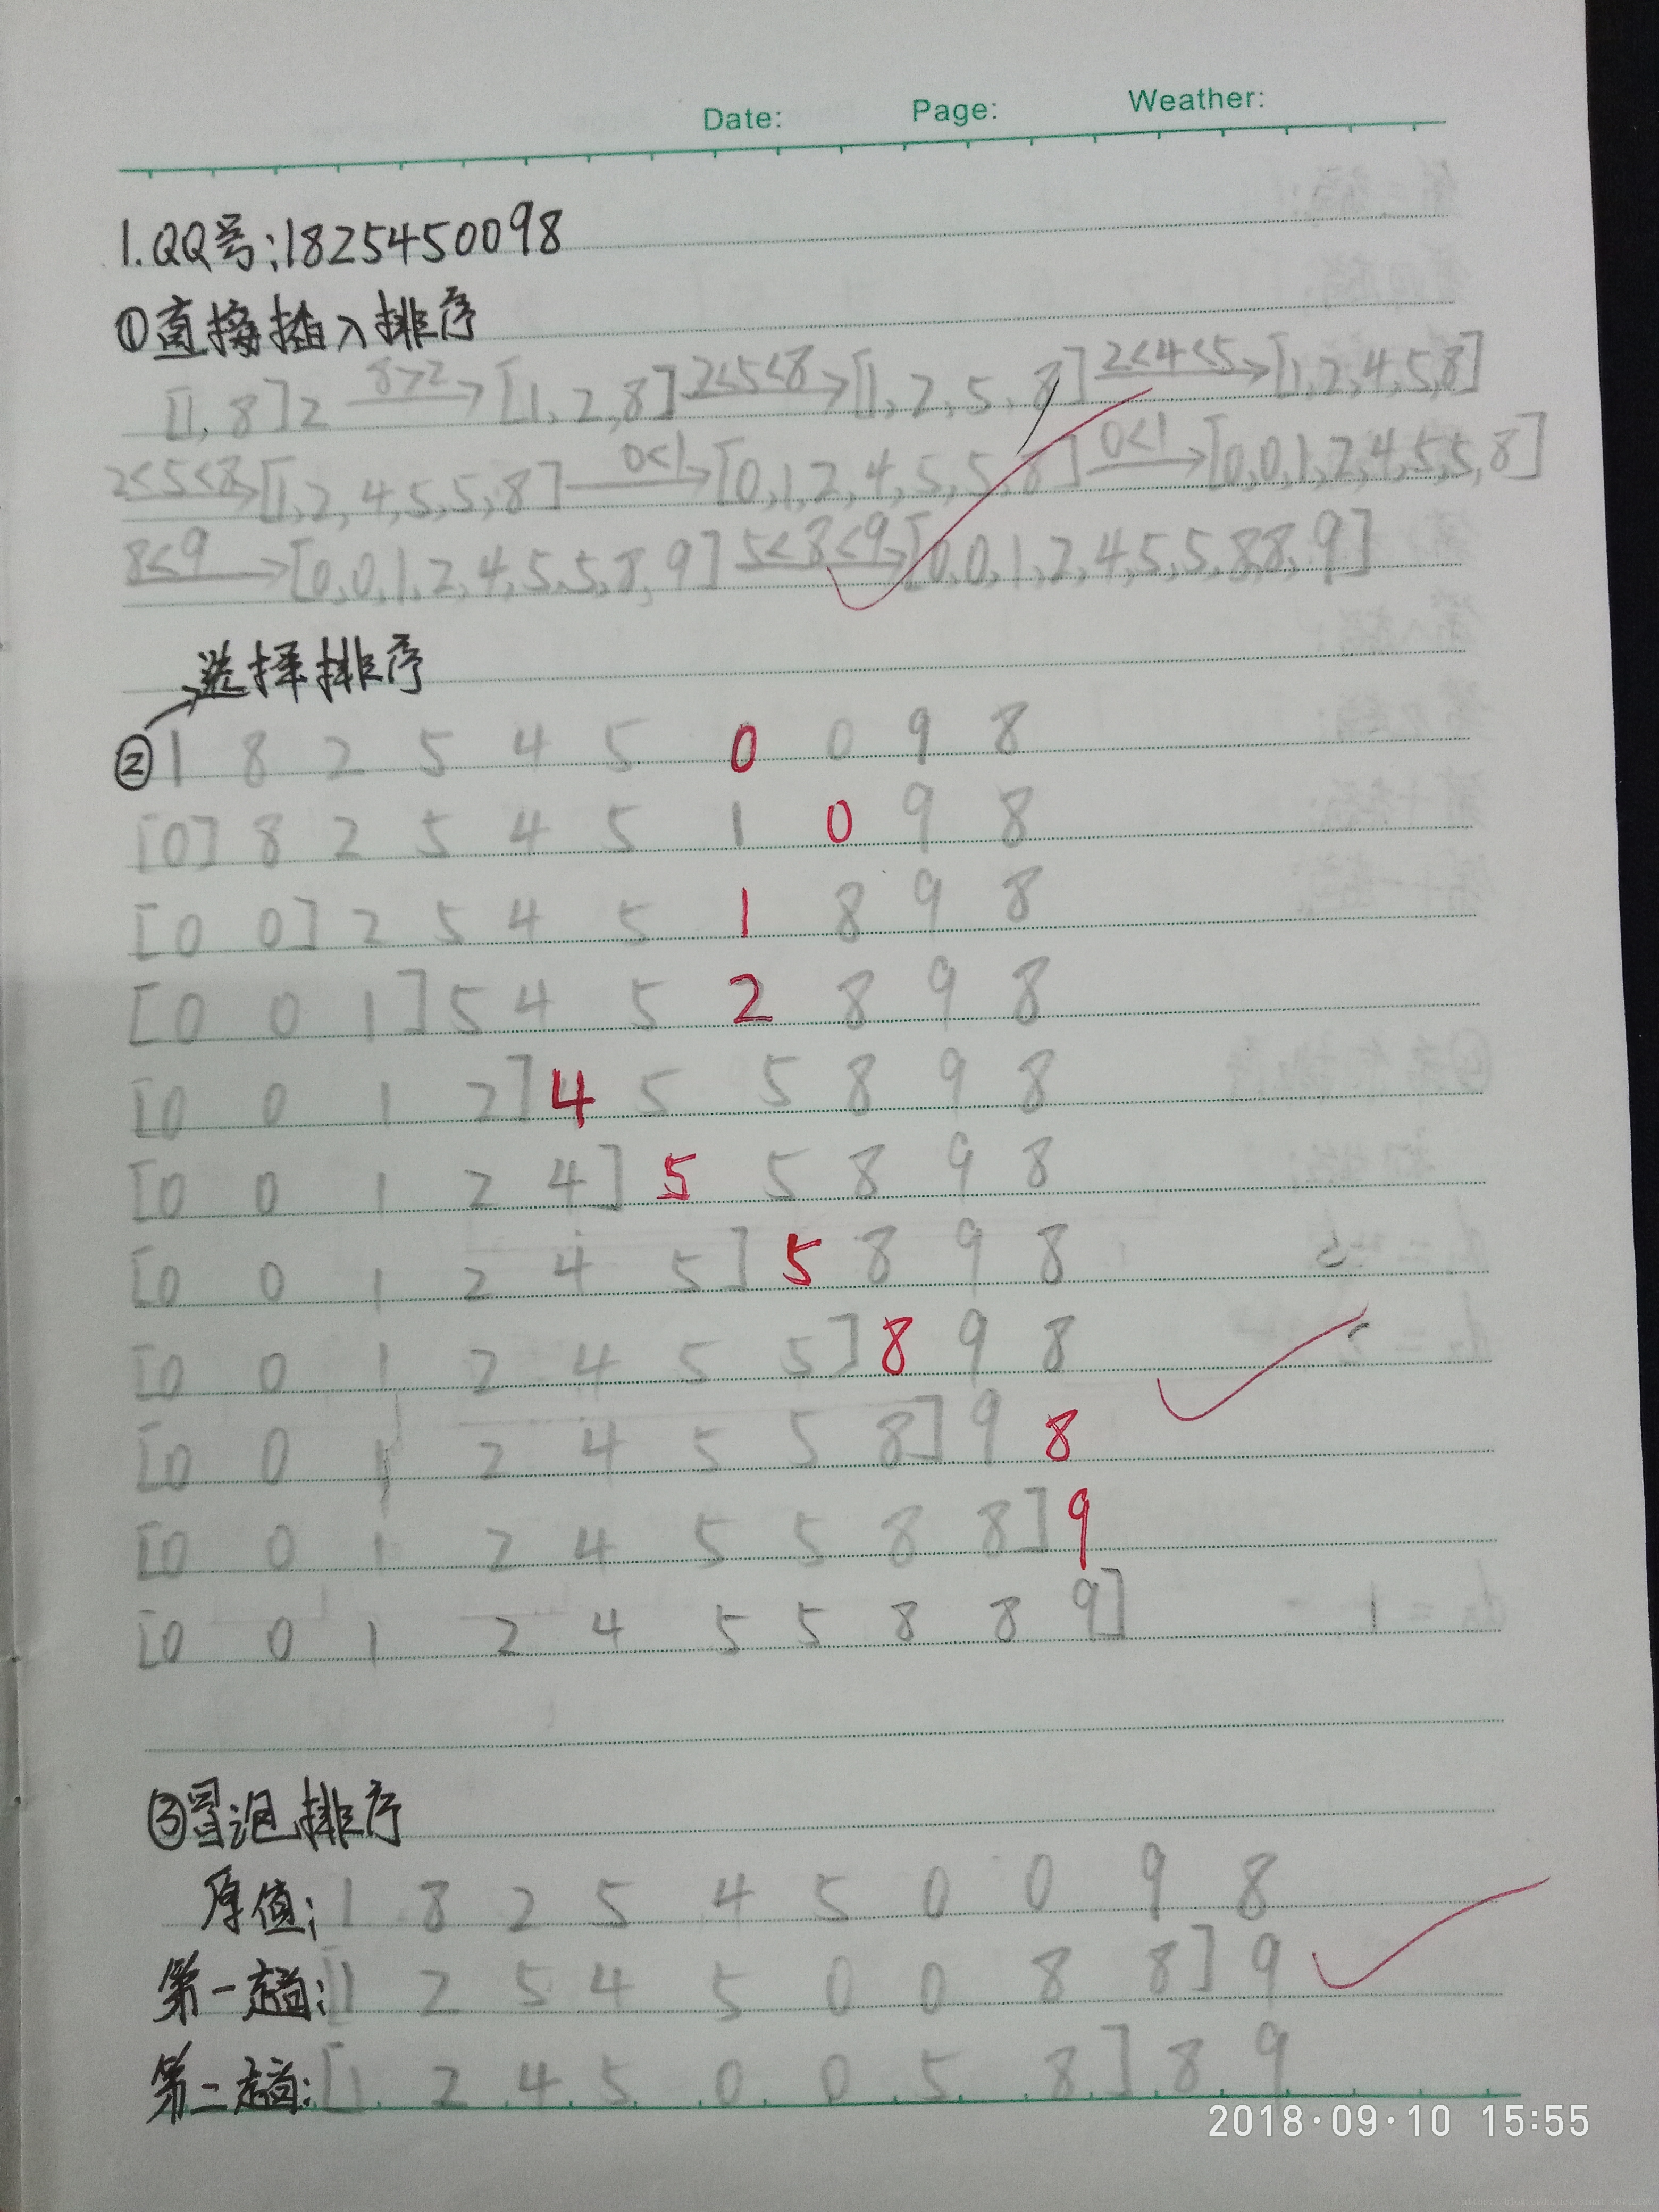 Date: Page: Weather:
1.QQ号:1825450098
①直接插入排序
[1,8]2 8>2→ [1,2,8] 2<5<8→ [1,2,5,8] 2<4<5→ [1,2,4,5,8]
2<5<8→ [1,2,4,5,5,8] 0<1→ [0,1,2,4,5,5,8] 0<1→ [0,0,1,2,4,5,5,8]
8<9→ [0,0,1,2,4,5,5,8,9] 5<8<9→ [0,0,1,2,4,5,5,8,8,9]
选择排序
② 1 8 2 5 4 5 0 0 9 8
[0] 8 2 5 4 5 1 0 9 8
[0 0] 2 5 4 5 1 8 9 8
[0 0 1] 5 4 5 2 8 9 8
[0 0 1 2] 4 5 5 8 9 8
[0 0 1 2 4] 5 5 8 9 8
[0 0 1 2 4 5] 5 8 9 8
[0 0 1 2 4 5 5] 8 9 8
[0 0 1 2 4 5 5 8] 9 8
[0 0 1 2 4 5 5 8 8] 9
[0 0 1 2 4 5 5 8 8 9]
③冒泡排序
原值: 1 8 2 5 4 5 0 0 9 8
第一趟: [1 2 5 4 5 0 0 8 8] 9
第二趟: [1 2 4 5 0 0 5 8] 8 9
2018·09·10 15:55